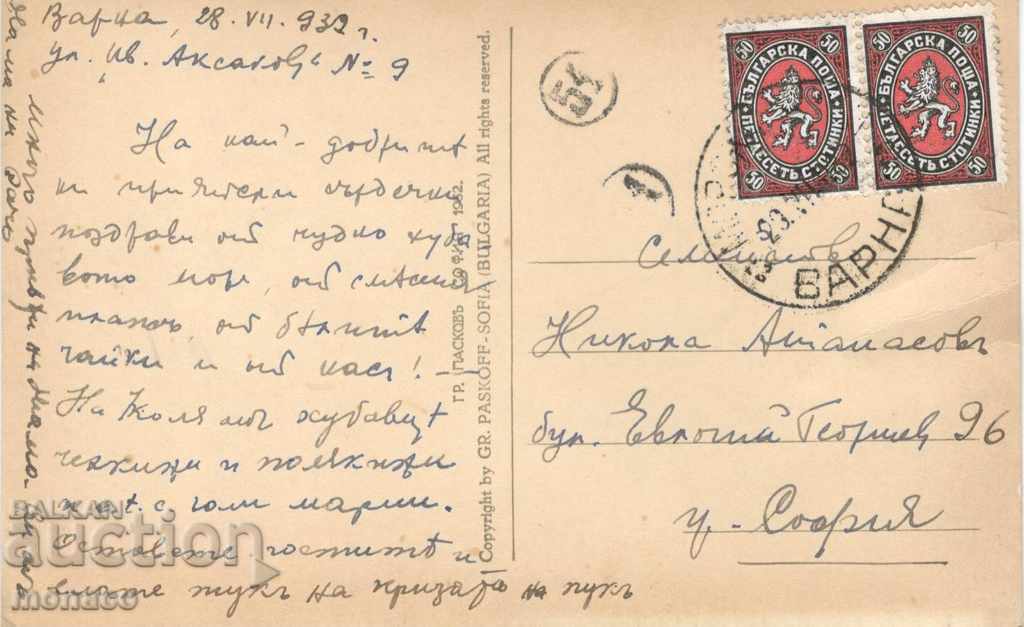 Варна, 28. VII. 932 г.
ул. "Ив. Аксаковъ" № 9
На най-добритѣ
ни приятели сърдечни
поздрави отъ чудно хуба
вото море, отъ
плажъ, отъ бѣлитѣ
чайки и отъ насъ! —
На Коля отъ хубавит
чехкини и полякини
и т. с голи
Оставете гоститѣ и
елате тукъ на кризата на пукъ
много
на
ГР. ПАСКОВЪ СОФИЯ 1932.
Copyright by GR. PASKOFF-SOFIA (BULGARIA) All rights reserved.
54
1
50 50
БЪЛГАРСКА ПОЩА
ПЕТДЕСЕТЬ СТОТИНКИ
50 50
50 50
БЪЛГАРСКА ПОЩА
ПЕТДЕСЕТЬ СТОТИНКИ
50 50
ВАРНА
Семейство
Никола Атанасовъ
бул. Евлогий Георгиев 96
гр. София
BALKAN
auction
monaco